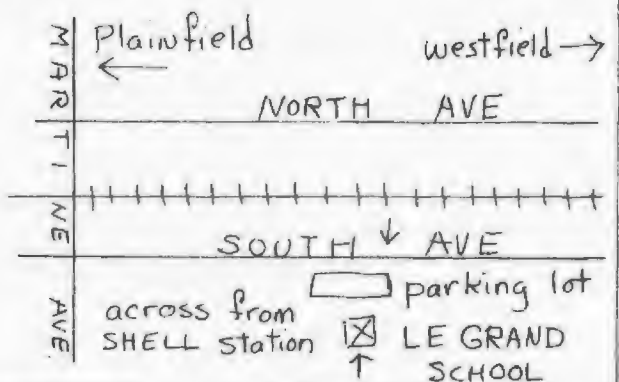 MARTINE AVE
Plainfield
westfield
NORTH AVE
SOUTH AVE
parking lot
across from
SHELL station
LE GRAND
SCHOOL